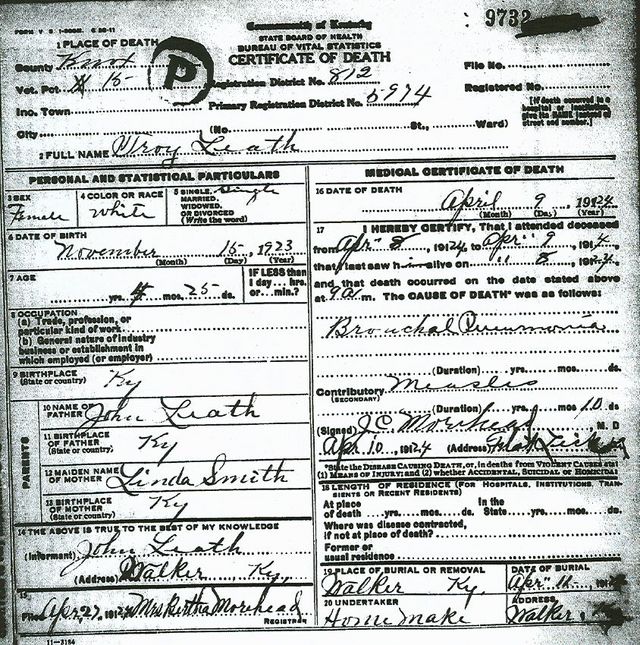 FORM V. S. 1-
Commonwealth of Kentucky
9732
STATE BOARD OF HEALTH
BUREAU OF VITAL STATISTICS
CERTIFICATE OF DEATH
1 PLACE OF DEATH
County Knox
P
Registration District No. 812
File No.
Vot. Pct 15
Primary Registration District No. 6974
Registered No.
Inc. Town
[If death occurred in a hospital or institution give its NAME instead of street and number.]
City (No. St., Ward)
2 FULL NAME Troy Leath
PERSONAL AND STATISTICAL PARTICULARS
3 SEX Female
4 COLOR OR RACE White
5 SINGLE, MARRIED, WIDOWED, OR DIVORCED (Write the word) Single
6 DATE OF BIRTH
November 15, 1923
(Month) (Day) (Year)
7 AGE
yrs. 4 mos. 25 ds.
IF LESS than 1 day... hrs. or... min.?
8 OCCUPATION
(a) Trade, profession, or particular kind of work
(b) General nature of industry business or establishment in which employed (or employer)
9 BIRTHPLACE
(State or country) Ky
PARENTS
10 NAME OF FATHER John Leath
11 BIRTHPLACE OF FATHER (State or country) Ky
12 MAIDEN NAME OF MOTHER Linda Smith
13 BIRTHPLACE OF MOTHER (State or country) Ky
14 THE ABOVE IS TRUE TO THE BEST OF MY KNOWLEDGE
(Informant) John Leath
(Address) Walker Ky.
15
Filed Apr. 27, 1924 Mrs Bertha Morehead
REGISTRAR
11-3184
MEDICAL CERTIFICATE OF DEATH
16 DATE OF DEATH
April 9, 1924
(Month) (Day) (Year)
17 I HEREBY CERTIFY, That I attended deceased
from Apr. 8, 1924, to Apr. 9, 191 4,
that I last saw h alive on " 8, 1924,
and that death occurred on the date stated above
at 9 a m. The CAUSE OF DEATH* was as follows:
Bronchal Pneumonia
(Duration) yrs. mos. ds.
Contributory Measles
(SECONDARY)
(Duration) yrs. mos 10 ds.
(Signed) J.C. Morehead M. D
Apr 10, 1924 (Address)
*State the DISEASE CAUSING DEATH, or, in deaths from VIOLENT CAUSES state (1) MEANS OF INJURY; and (2) whether ACCIDENTAL, SUICIDAL or HOMICIDAL
18 LENGTH OF RESIDENCE (FOR HOSPITALS, INSTITUTIONS, TRANSIENTS OR RECENT RESIDENTS)
At place of death yrs. mos. ds. In the State yrs. mos. ds.
Where was disease contracted, if not at place of death?
Former or usual residence
19 PLACE OF BURIAL OR REMOVAL
Walker Ky.
DATE OF BURIAL
Apr. 11, 1924
20 UNDERTAKER
Home make
ADDRESS
Walker,